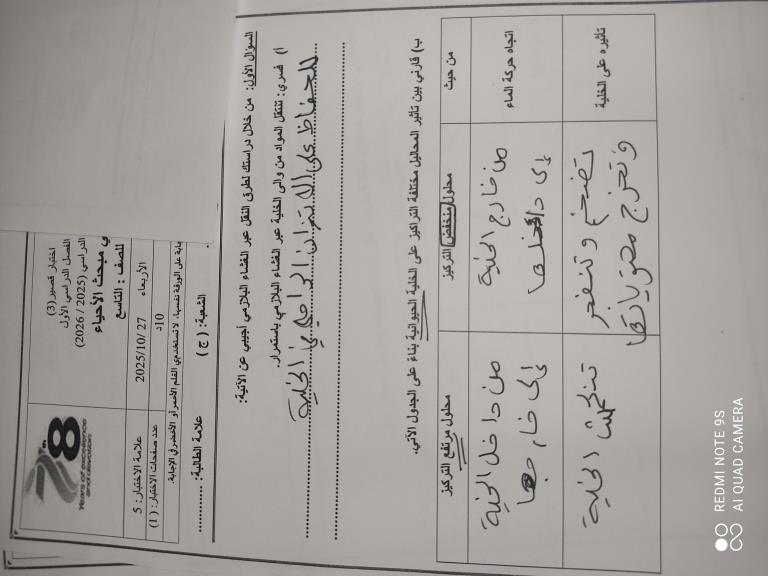 اختبار قصير (3)
الفصل الدراسي الأول
الدراسي (2025 / 2026)
ي مبحث الأحياء
للصف : التاسع
78
Years of excellence
and devotion
علامة الاختبار : 5
2025/10/ 27
الأربعاء
عدد صفحات الاختبار : (1)
10د
بابة على الورقة نفسها، لا تستخدمي القلم الأحمر أو الأخضر في الإجابة.
علامة الطالبة: ............
الشعبة: ( ج )
السؤال الأول: من خلال دراستك لطرق النقل عبر الغشاء البلازمي أجيبي عن الآتية:
أ) فسري: تنتقل المواد من وإلى الخلية عبر الغشاء البلازمي باستمرار.
للحفاظ على الاتزان الداخلي الخلية
ب) قارني بين تأثير المحاليل مختلفة التراكيز على الخلية الحيوانية بناء على الجدول الآتي.
من حيث
محلول منخفض التركيز
محلول مرتفع التركيز
اتجاه حركة الماء
من خارج الخلية
إلى داخلها
من داخل الخلية
إلى خارجها
تأثيره على الخلية
تضخم وتنفجر
وتخرج محتوياتها
تنكمش الخلية
REDMI NOTE 9S
AI QUAD CAMERA